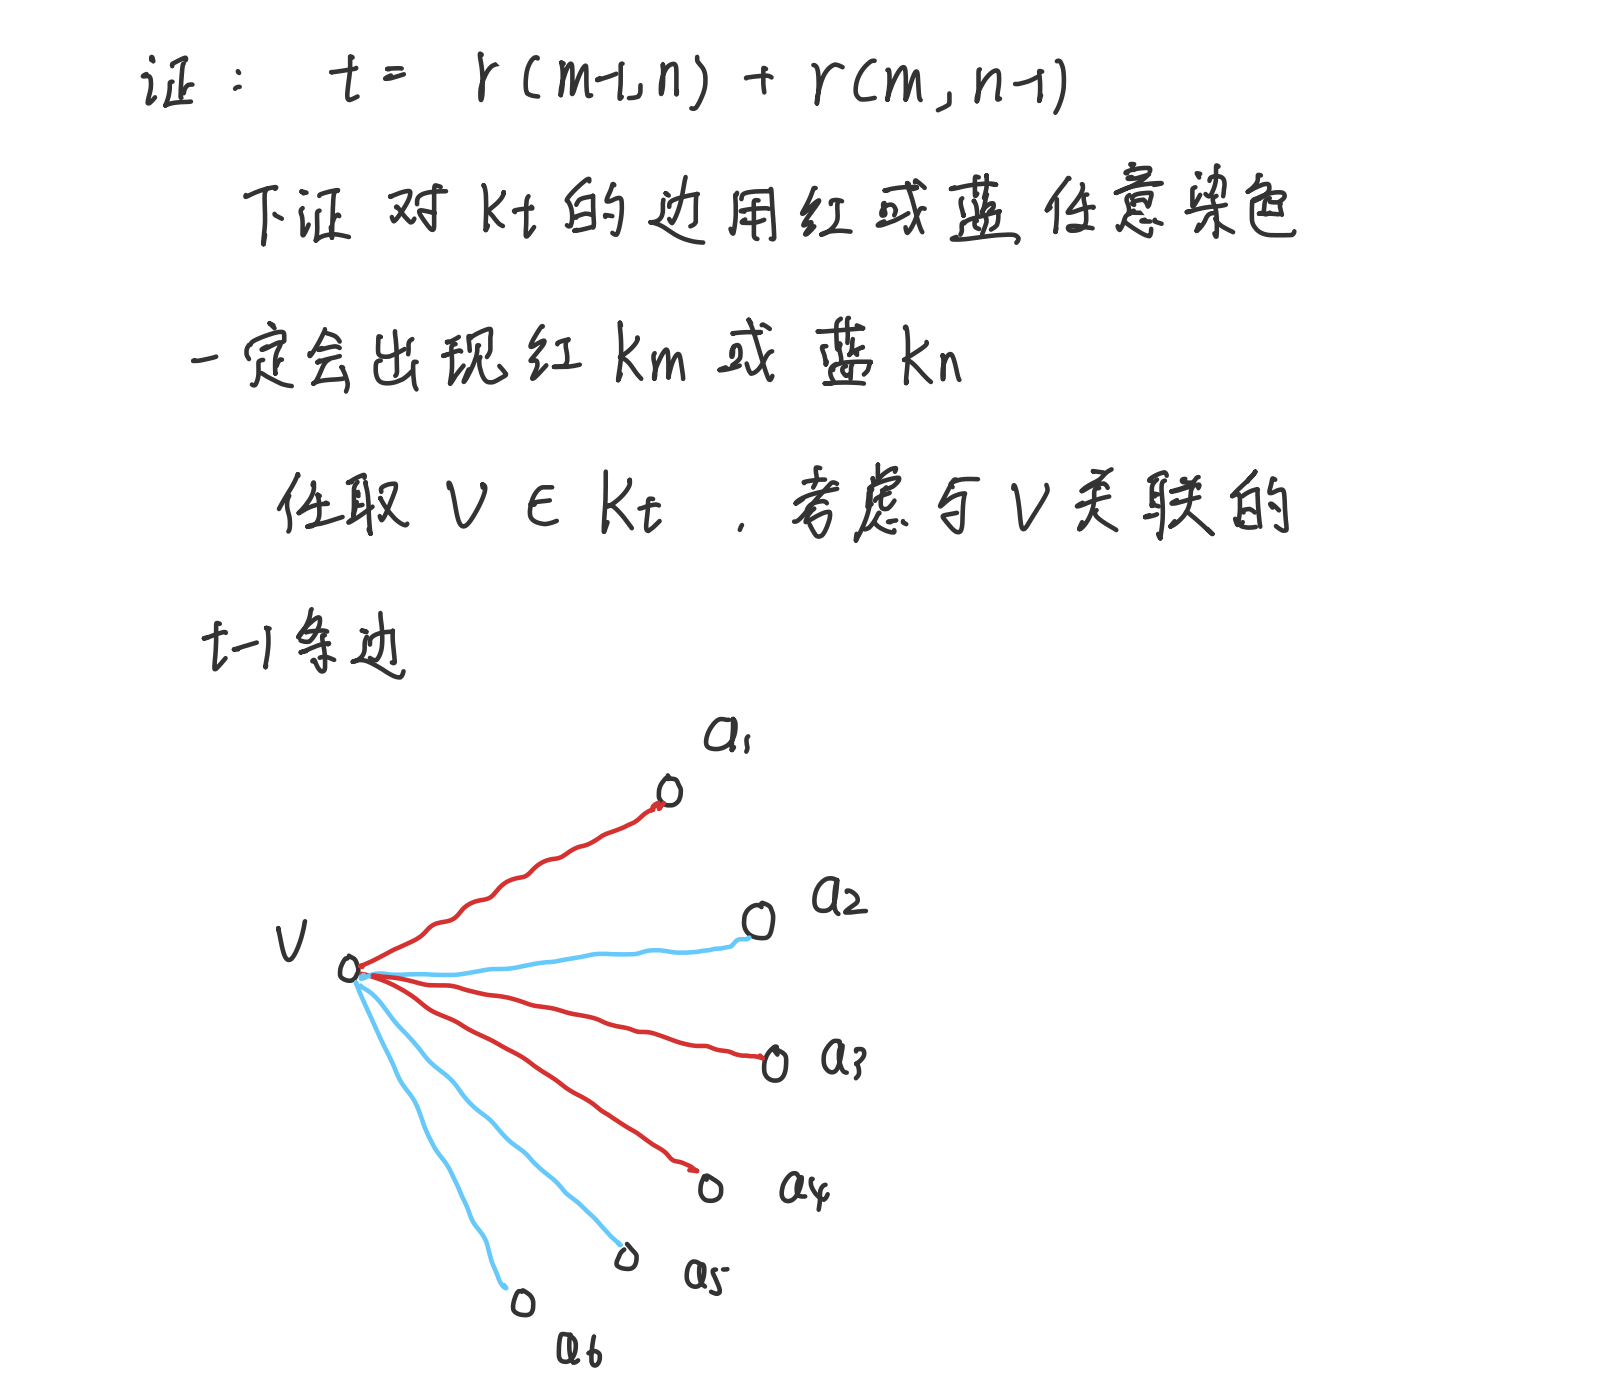 证： t = r(m-1,n) + r(m,n-1)
下证 对 Kt 的边用红或蓝任意染色
一定会出现红 km 或 蓝 kn
任取 V ∈ Kt . 考虑与 V 关联的
t-1 条边
a1
a2
V
a3
a4
a5
a6